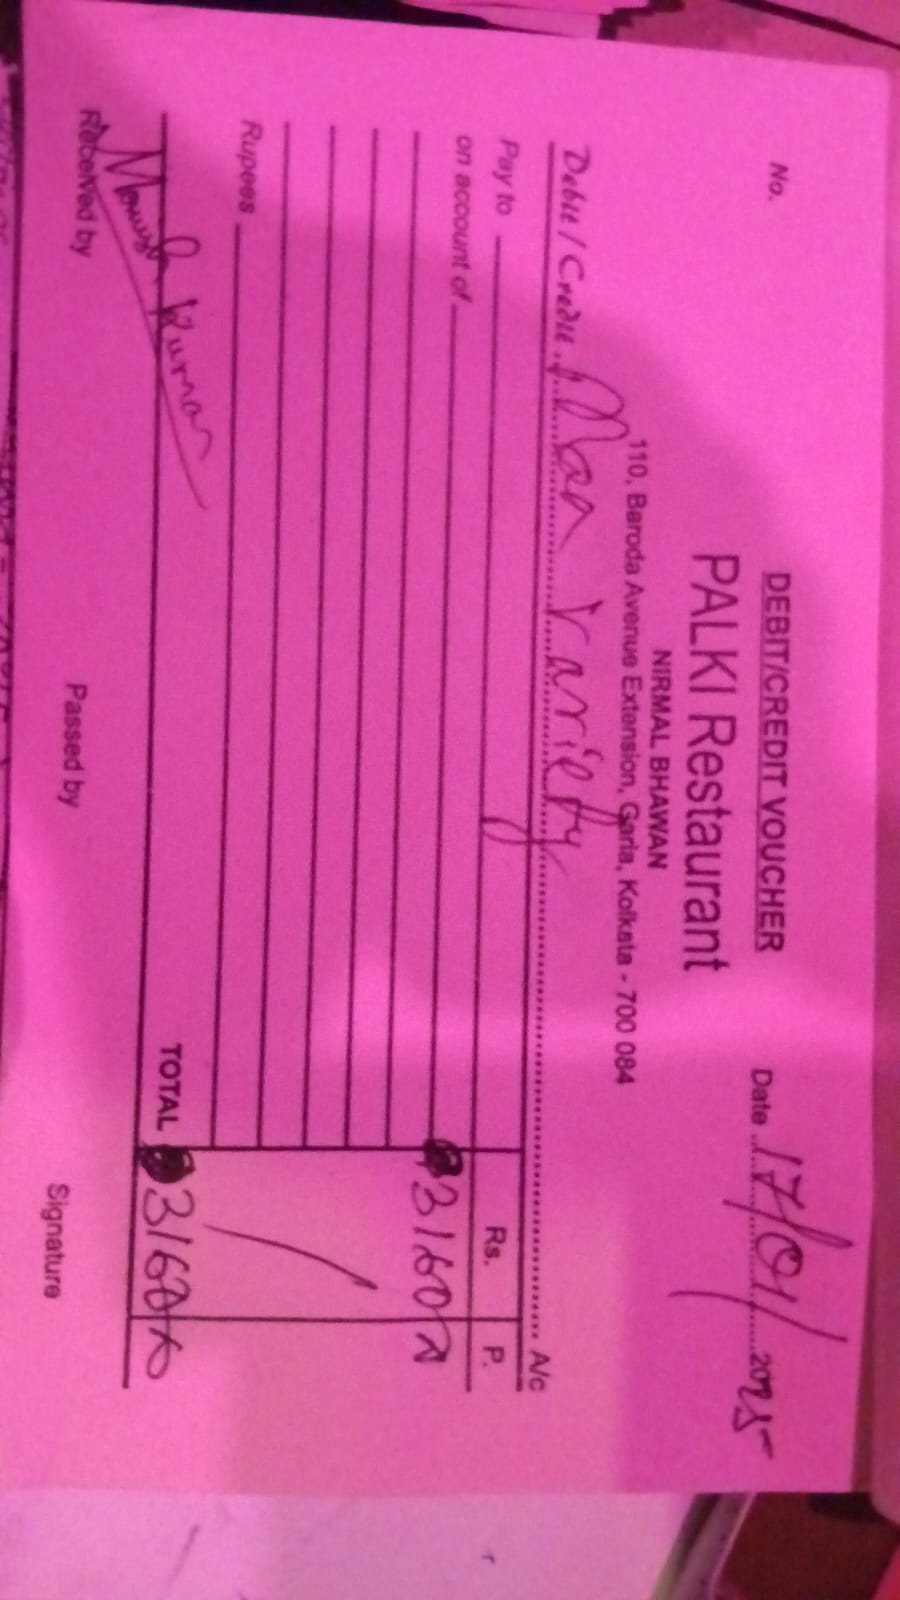 No.
DEBIT/CREDIT VOUCHER
Date 17/01/2025
PALKI Restaurant
NIRMAL BHAWAN
110, Baroda Avenue Extension, Garia, Kolkata - 700 084
Debit / Credit Variety A/c
Pay to
Rs. P.
on account of
3160
Rupees
TOTAL 3160
Kumar
Received by
Passed by
Signature